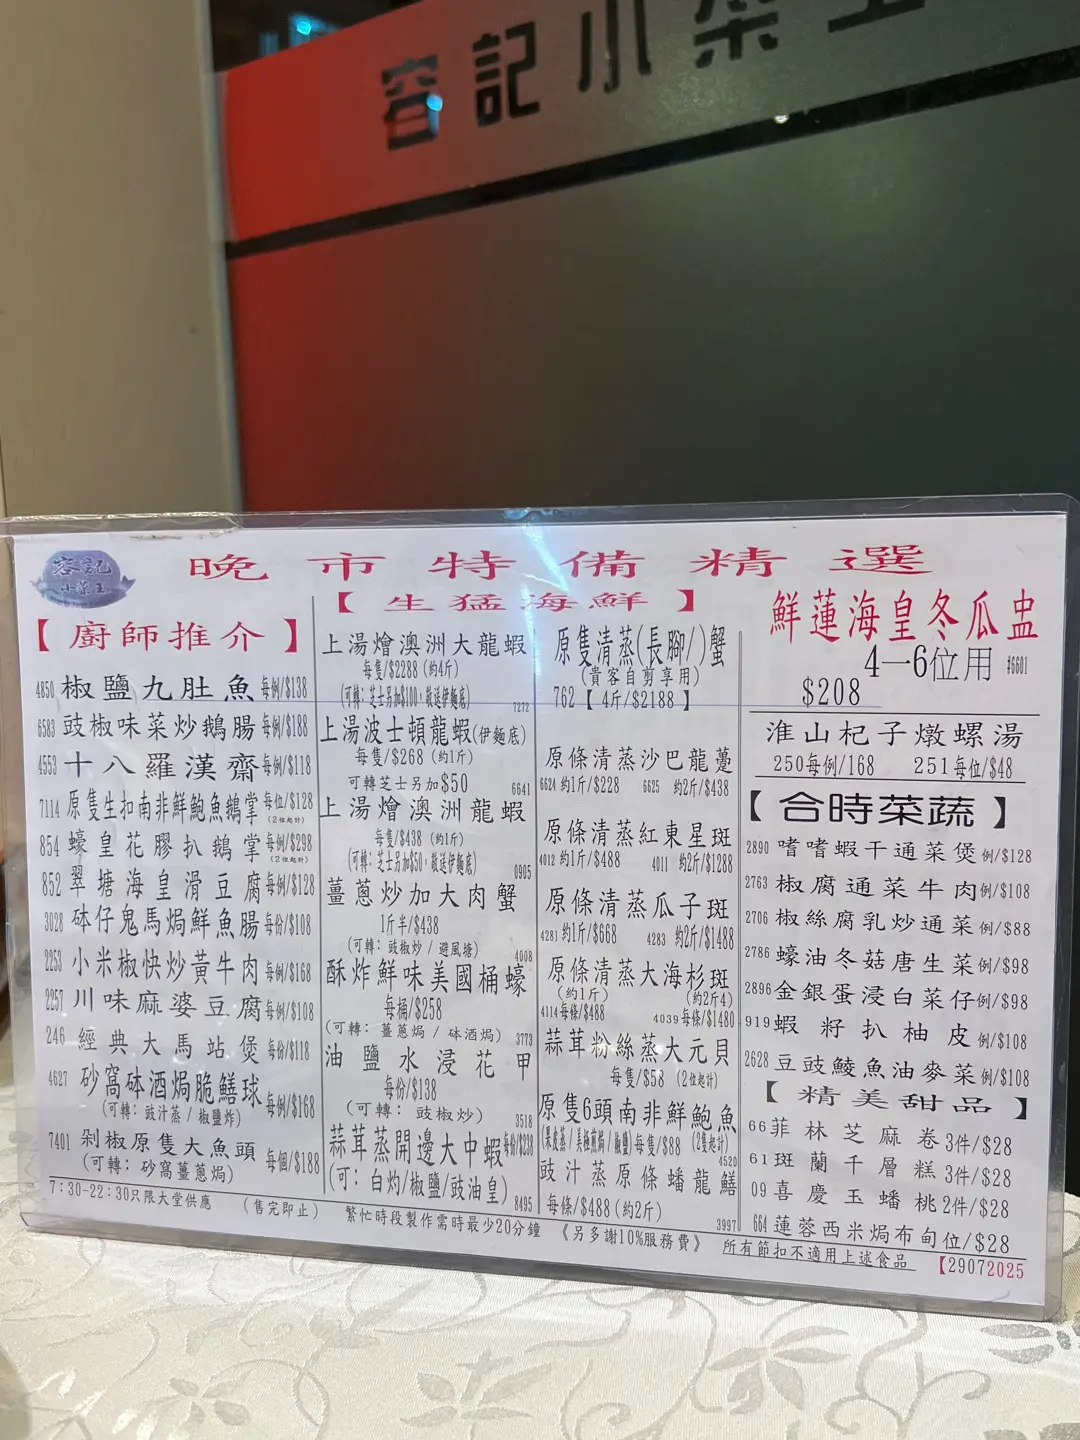 容記小菜王
容記
小菜王
晚市特備精選
【廚師推介】
4850 椒鹽九肚魚 每例/$138
6583 豉椒味菜炒鵝腸 每例/$188
4553 十八羅漢齋 每例/$118
7114 原隻生扣南非鮮鮑魚鵝掌 每位/$128
(2位起計)
854 蠔皇花膠扒鵝掌 每例/$298
(2位起計)
852 翠塘海皇滑豆腐 每例/$128
3028 砵仔鬼馬焗鮮魚腸 每份/$108
2253 小米椒快炒黃牛肉 每例/$168
2257 川味麻婆豆腐 每例/$108
246 經典大馬站煲 每份/$118
4627 砂窩砵酒焗脆鱔球 每例/$168
(可轉：豉汁蒸/椒鹽炸)
7401 剁椒原隻大魚頭 每個/$188
(可轉：砂窩薑蔥焗)
【生猛海鮮】
上湯燴澳洲大龍蝦
每隻/$2288 (約4斤)
(可轉：芝士另加$100，敬送伊麵底) 7272
上湯波士頓龍蝦(伊麵底)
每隻/$268 (約1斤)
可轉芝士另加$50 6641
上湯燴澳洲龍蝦
每隻/$438 (約1斤)
(可轉：芝士另加$50，敬送伊麵底) 0905
薑蔥炒加大肉蟹
1斤半/$438
(可轉：豉椒炒/避風塘) 4008
酥炸鮮味美國桶蠔
每桶/$258
(可轉：薑蔥焗/砵酒焗) 3773
油鹽水浸花甲
每份/$138
(可轉：豉椒炒) 3518
蒜茸蒸開邊大中蝦 每份/$238
(可：白灼/椒鹽/豉油皇) 8495
原隻清蒸(長腳/)蟹
(貴客自剪享用)
762【4斤/$2188】
原條清蒸沙巴龍躉
6624 約1斤/$228 6625 約2斤/$438
原條清蒸紅東星斑
4012 約1斤/$488 4011 約2斤/$1288
原條清蒸瓜子斑
4281 約1斤/$668 4283 約2斤/$1488
原條清蒸大海杉斑
(約1斤) (約2斤4)
4114 每條/$488 4039 每條/$1480
蒜茸粉絲蒸大元貝
每隻/$58 (2位起計)
原隻6頭南非鮮鮑魚
(果皮蒸/美極煎焗/椒鹽)每隻/$88 (2隻起計)
4520
豉汁蒸原條蟠龍鱔
每條/$488(約2斤) 3997
鮮蓮海皇冬瓜盅
4—6位用 #6601
$208
淮山杞子燉螺湯
250每例/168 251每位/$48
【合時菜蔬】
2890 嗜嗜蝦干通菜煲 例/$128
2763 椒腐通菜牛肉 例/$108
2706 椒絲腐乳炒通菜 例/$88
2786 蠔油冬菇唐生菜 例/$98
2896 金銀蛋浸白菜仔 例/$98
919 蝦籽扒柚皮 例/$108
2628 豆豉鯪魚油麥菜 例/$108
【精美甜品】
66 菲林芝麻卷 3件/$28
61 斑蘭千層糕 3件/$28
09 喜慶玉蟠桃 2件/$28
664 蓮蓉西米焗布甸 位/$28
7:30-22:30只限大堂供應 (售完即止) 繁忙時段製作需時最少20分鐘 《另多謝10%服務費》 所有節扣不適用上述食品 【29072025